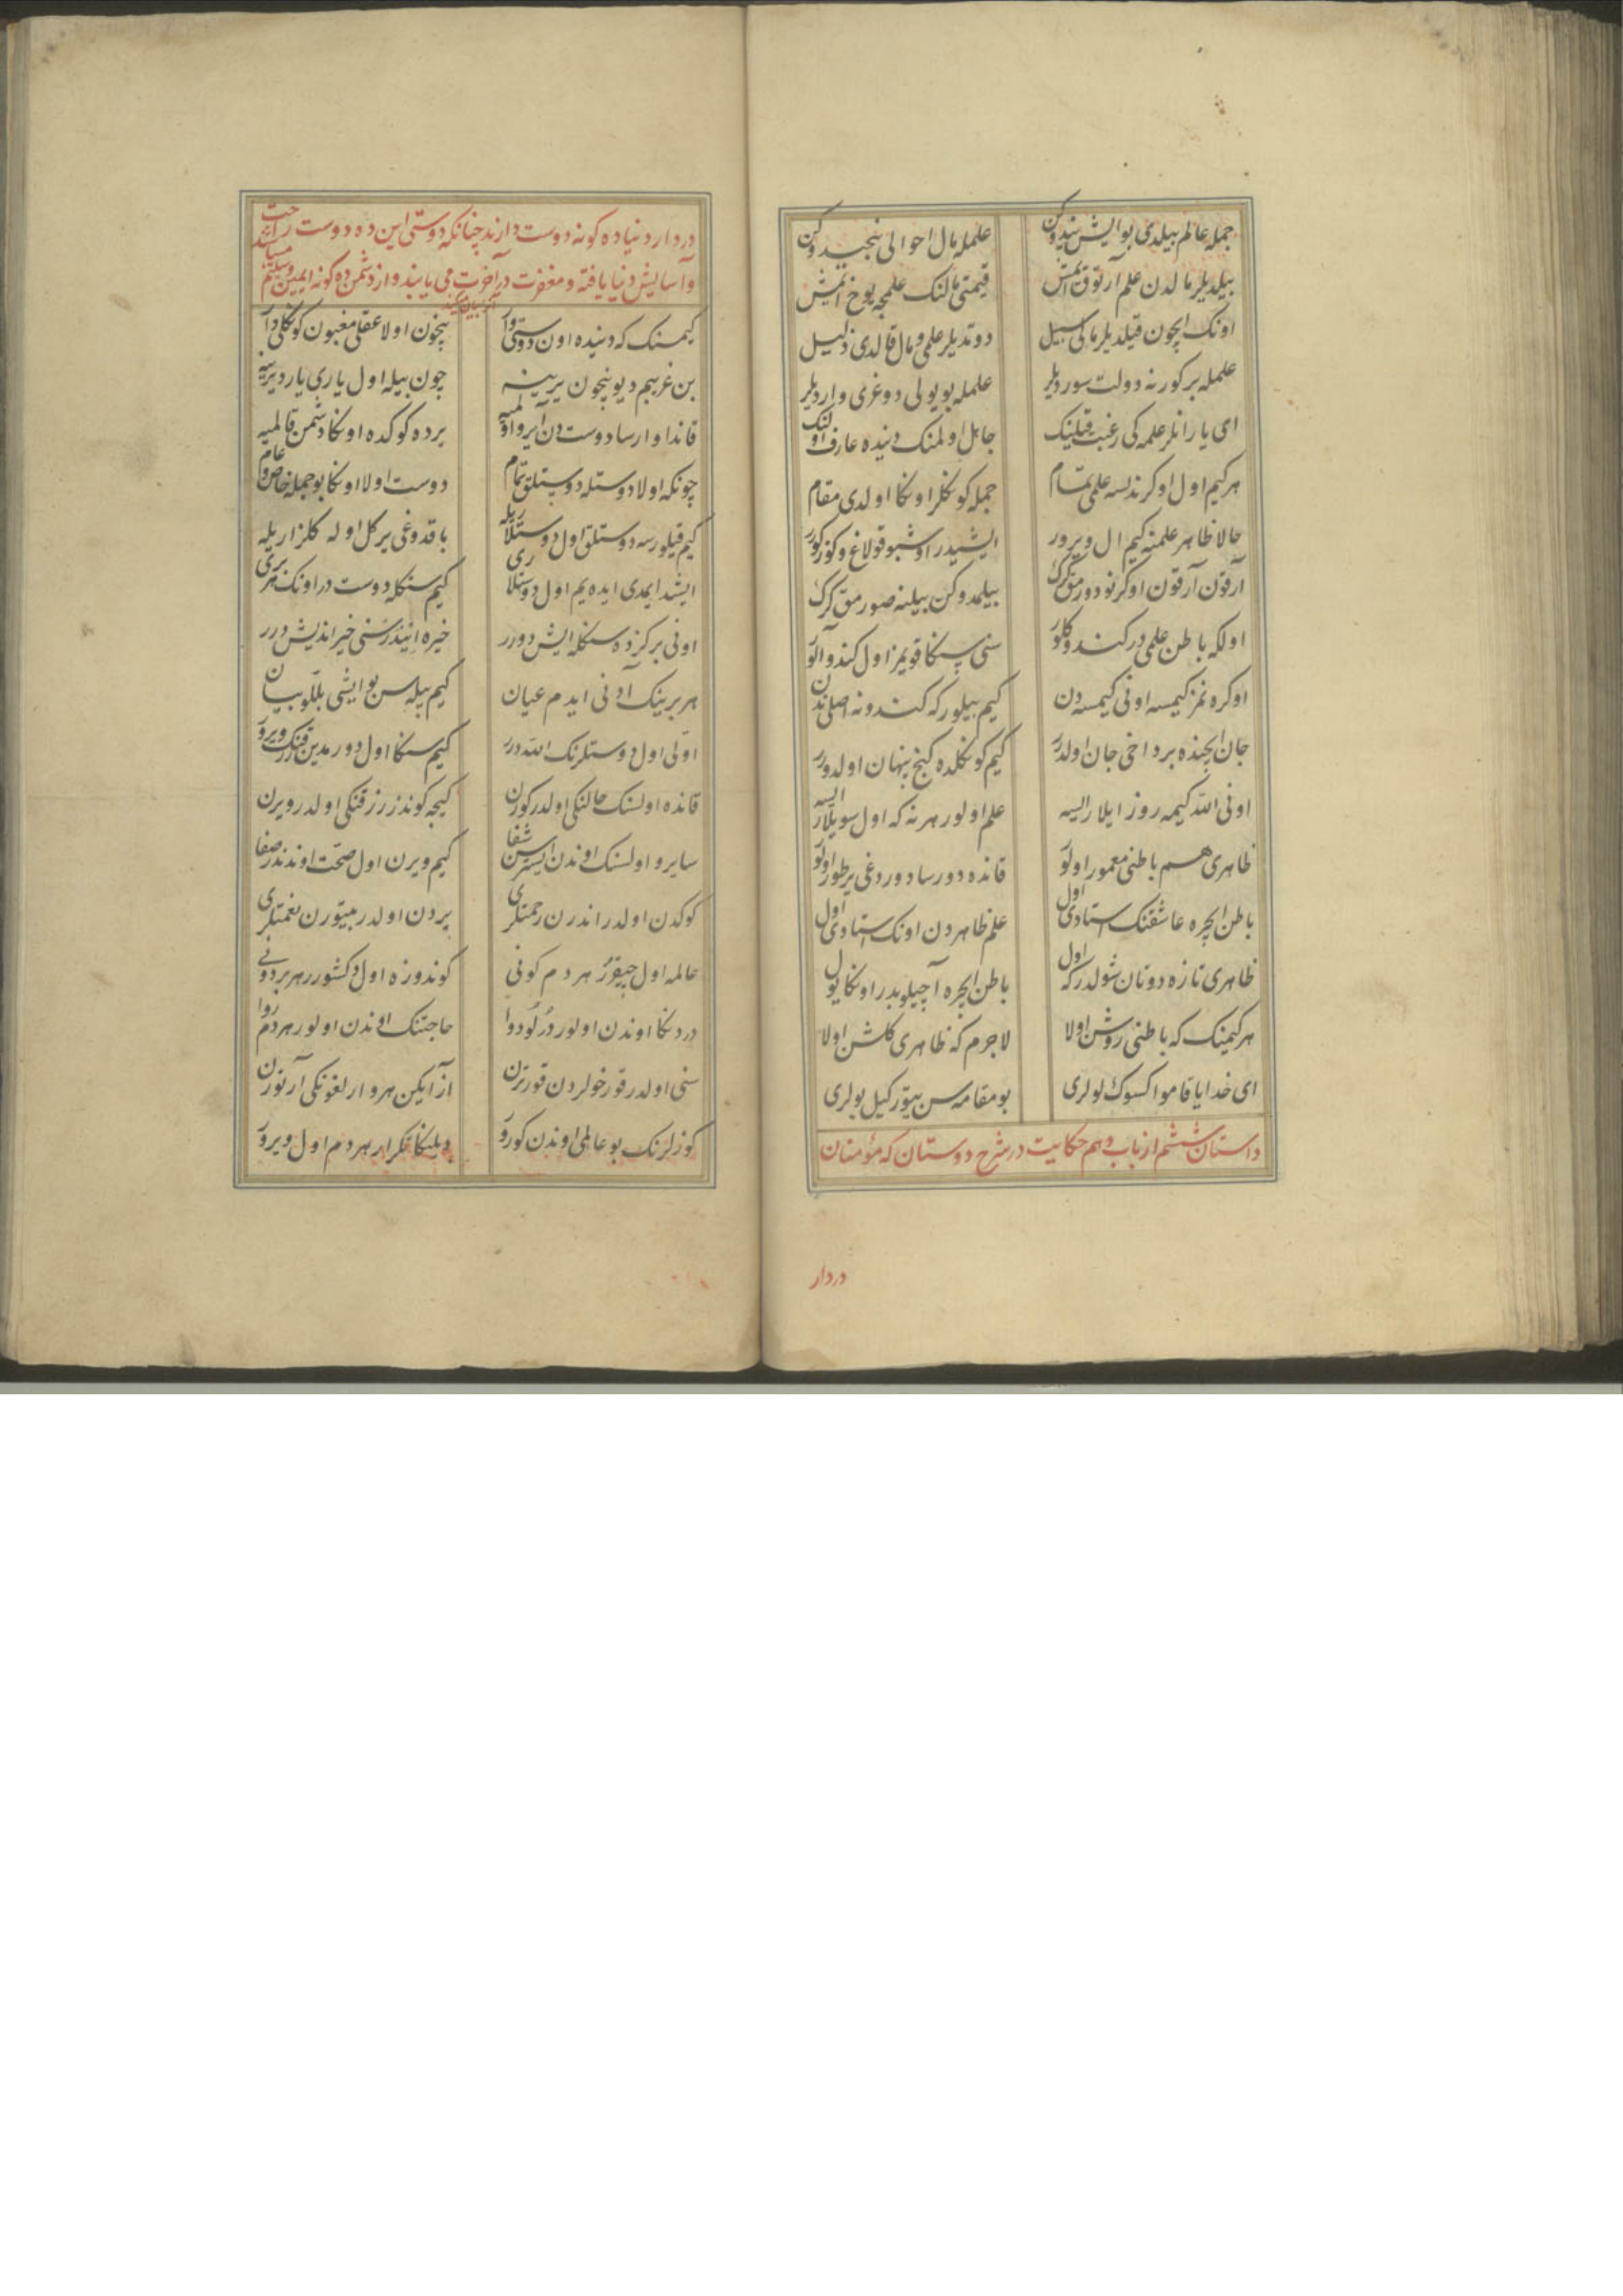 جمله عالم بیلدی بو ایش نیدوکن
علمله مال احوالی نجیدوکن
بیلدیلر مالدن علم آرتوق ایمش
قیمتی مالنک علمجه یوخ ایمش
اونک ایچون قیلدیلر مالی سبیل
دوتدیلر علمی و مال قالدی ذلیل
علمله بر کورنه دولت سوردیلر
علمله بو یولی دوغری واردیلر
ای یارانلر علمه کی رغبت قیلینک
جاهل اولمنک دنیده عارف اولنک
هر کیم اول اوکرندیسه علمی تمام
جمله کوکللر اونکا اولدی مقام
حالا ظاهر علمنه کیم ال ویرور
ایشیدر اوشبو قولاغ و کوز کورر
آرقون آرقون اوکرنو دورمق کرک
بیلمدوکن بیلنه صورمق کرک
اولکه باطن علمی در کندو کلور
سنی سنکا قویمز اول کندو آلور
اوکره نمز کیمسه اونی کیمسه دن
کیم بیلور که کندونه اصلی ندن
جان ایچنده بر داخی جان اولدر
کیم کوکلده کنج پنهان اولدورر
اونی الله کیمه روز ایلار ایسه
علم اولور هر نه که اول سویلار ایسه
ظاهری هم باطنی معمور اولور
قانده دورسا دوردغی یر طور اولور
باطن ایچره عاشقنک استادی اول
علم ظاهردن اونک استادی اول
ظاهری تازه دوتان شولدر که اول
باطن ایچره آچیلوبدر اونکا یول
هر کیمینک که باطنی روشن اولا
لاجرم که ظاهری کلشن اولا
ای خدایا قامو اکسوک لولری
بو مقامه سن ییتورکیل یولری
داستان ششم از باب دهم حکایت در شرح دوستان که مؤمنان
دردار
در دار دنیا ده کونه دوست دارند چنانکه دوستی این ده دوست راحت
و آسایش دنیا یافته و مغفرت در آخرت می یابند و از دشمن ده کونه ایمن
کیمسنک که دنیده اون دوستی وار
نیچون اولا عقلی مغبون کوکلی دار
بن غریبم دیو نیچون یرینه
چون بیله اول یاری یار دیرینه
قاندا وارسا دوست دن آیرو اولمیه
یرده کوکده اونکا دشمن قالمیه
چونکه اولا دوستله دوستلق تمام
دوست اولا اونکا بو جمله خاص و عام
کیم قیلورسه دوستلق اول دوستلاریله
باقدوغی یر کل اوله کلزاریله
ایشد ایمدی ایده یم اول دوستلاری
کیم سنکله دوست در اونک هر بری
اونی بر کزده سنکله ایش دورر
خیره ایندرر سنی خیر اندیش درر
هر برینک آدنی ایدم عیان
کیم بیله سن بو ایشی بللو بیان
اولی اول دوستلرنک الله درر
کیم سنکا اول دورمدین رزقنک ویرور
قانده اولسنک حالنکی اولدر کورن
کیجه کوندز رزقنکی اولدر ویرن
سایرو اولسنک اوندن ایسترسن شفا
کیم ویرن اول صحت اوندندر صفا
کوکدن اولدر اندرن رحمتلری
یردن اولدر بیتورن نعمتلری
عالمه اول چیقرر هر دم کونی
کوندوزه اول دکشورر هر بر دونی
دردنکا اوندن اولور درلو دوا
حاجتنک اوندن اولور هر دم روا
سنی اولدر قورخولردن قورترن
آز ایکن هر وارلغونکی آرتورن
کوزلرنک بو عالمی اوندن کورور
دیلنکا تکرار هر دم اول ویرور